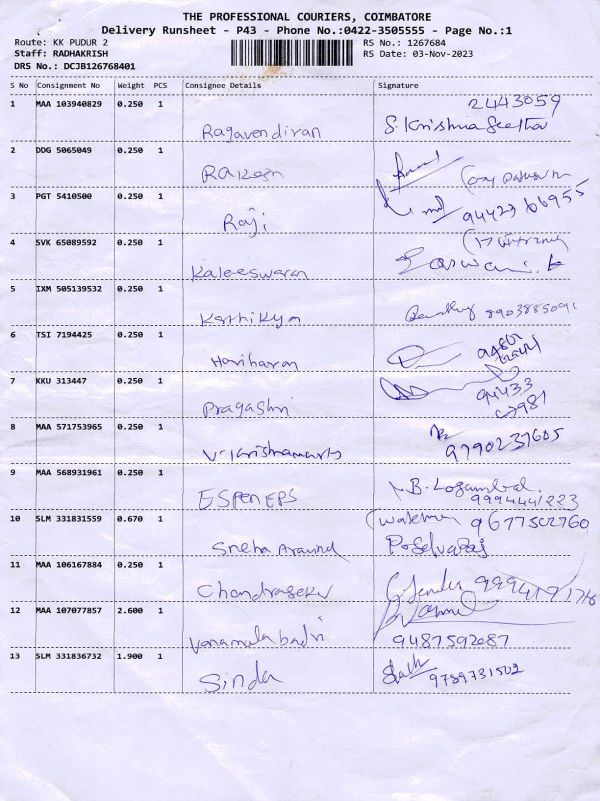 THE PROFESSIONAL COURIERS, COIMBATORE
Delivery Runsheet - P43 - Phone No.:0422-3505555 - Page No.:1
Route: KK PUDUR 2 RS No.: 1267684
Staff: RADHAKRISH RS Date: 03-Nov-2023
DRS No.: DCJB126768401
S No Consignment No Weight PCS Consignee Details Signature
1 MAA 103940829 0.250 1 2443059
Ragavendiran S. Krishna Seetha
2 DDG 5065049 0.250 1
Rakesh
3 PGT 5410500 0.250 1
Raji 9442366955
4 SVK 65089592 0.250 1
Kaleeswaran Easwari. k
5 IXM 505139532 0.250 1
Karthikyn 8903885091
6 TSI 7194425 0.250 1
Hariharan
7 KKU 313447 0.250 1 94433
Pragashri
8 MAA 571753965 0.250 1
V. Krishnamurth 9790237605
9 MAA 568931961 0.250 1 B. Logambal.
ESPEN EPS 9994441223
10 SLM 331831559 0.670 1 9677502760
Sneha Aravind P. Selvaraj
11 MAA 106167884 0.250 1
Chandraseker
12 MAA 107077857 2.600 1
Vanamala badri 9487592087
13 SLM 331836732 1.900 1
Sinda 9789731502